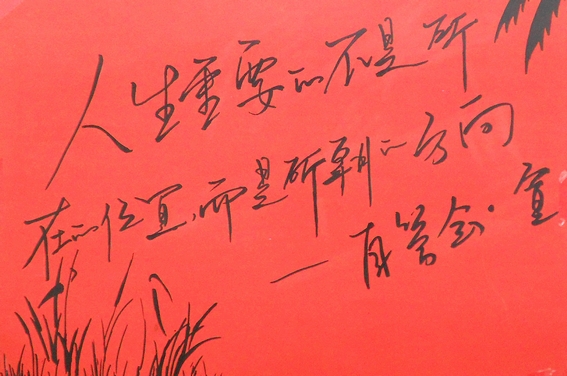 人生重要的不是所
在的位置,而是所朝的方向
—自管会·宣